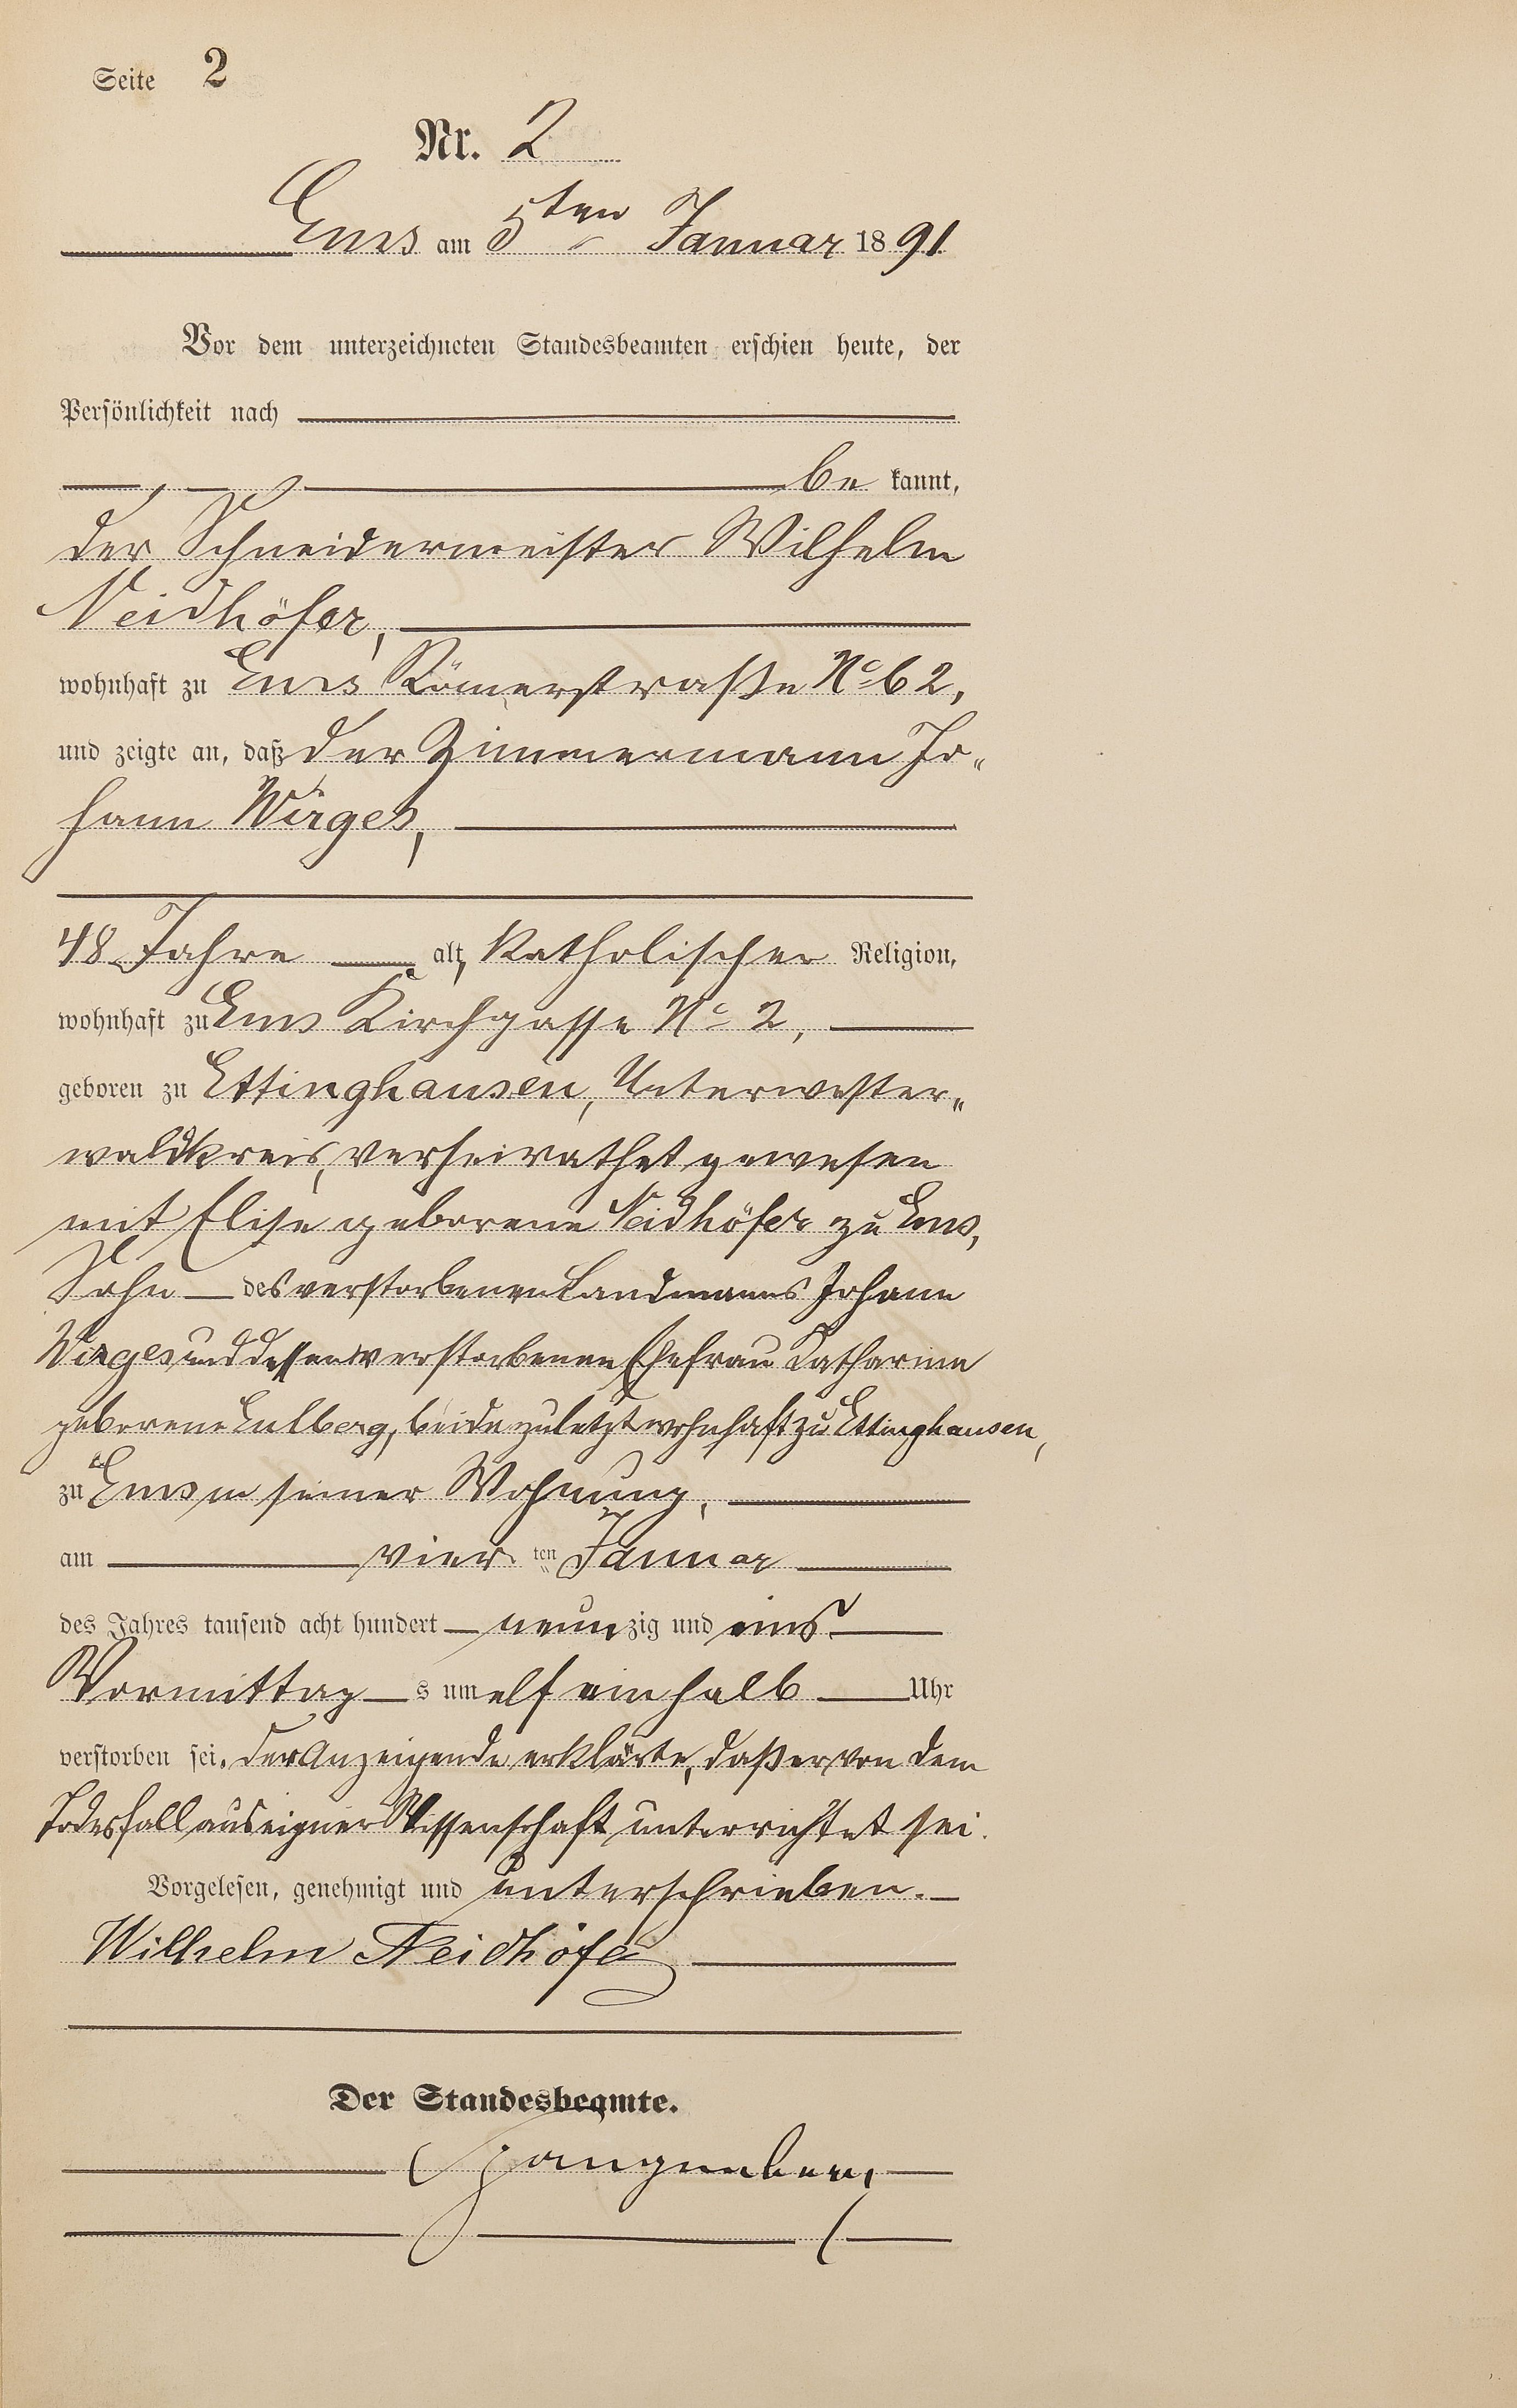 Seite 2
Nr. 2
Ems am 5ten Januar 1891
Vor dem unterzeichneten Standesbeamten erschien heute, der
Persönlichkeit nach
be kannt,
der Schneidermeister Wilhelm
Neidhöfer,
wohnhaft zu Ems Römerstraße No 62,
und zeigte an, daß der Zimmermann Jo„
hann Wirges,
48 Jahre alt, katholischer Religion,
wohnhaft zu Ems Kirchgasse No 2,
geboren zu Ettinghausen, Unterwester„
waldkreis, verheirathet gewesen
mit Elise geborene Neidhöfer zu Ems,
Sohn des verstorbenen Landmanns Johann
Wirges und dessen verstorbenen Ehefrau Katharina
geborene Eulberg, beide zuletzt wohnhaft zu Ettinghausen,
zu Ems in seiner Wohnung,
am vier ten Januar
des Jahres tausend acht hundert neun zig und eins
Vormittag s um elf einhalb Uhr
verstorben sei. Der Anzeigende erklärte, daß er von dem
Todesfall aus eigner Wissenschaft unterrichtet sei.
Vorgelesen, genehmigt und unterschrieben.
Wilhelm Neidhöfer
Der Standesbeamte.